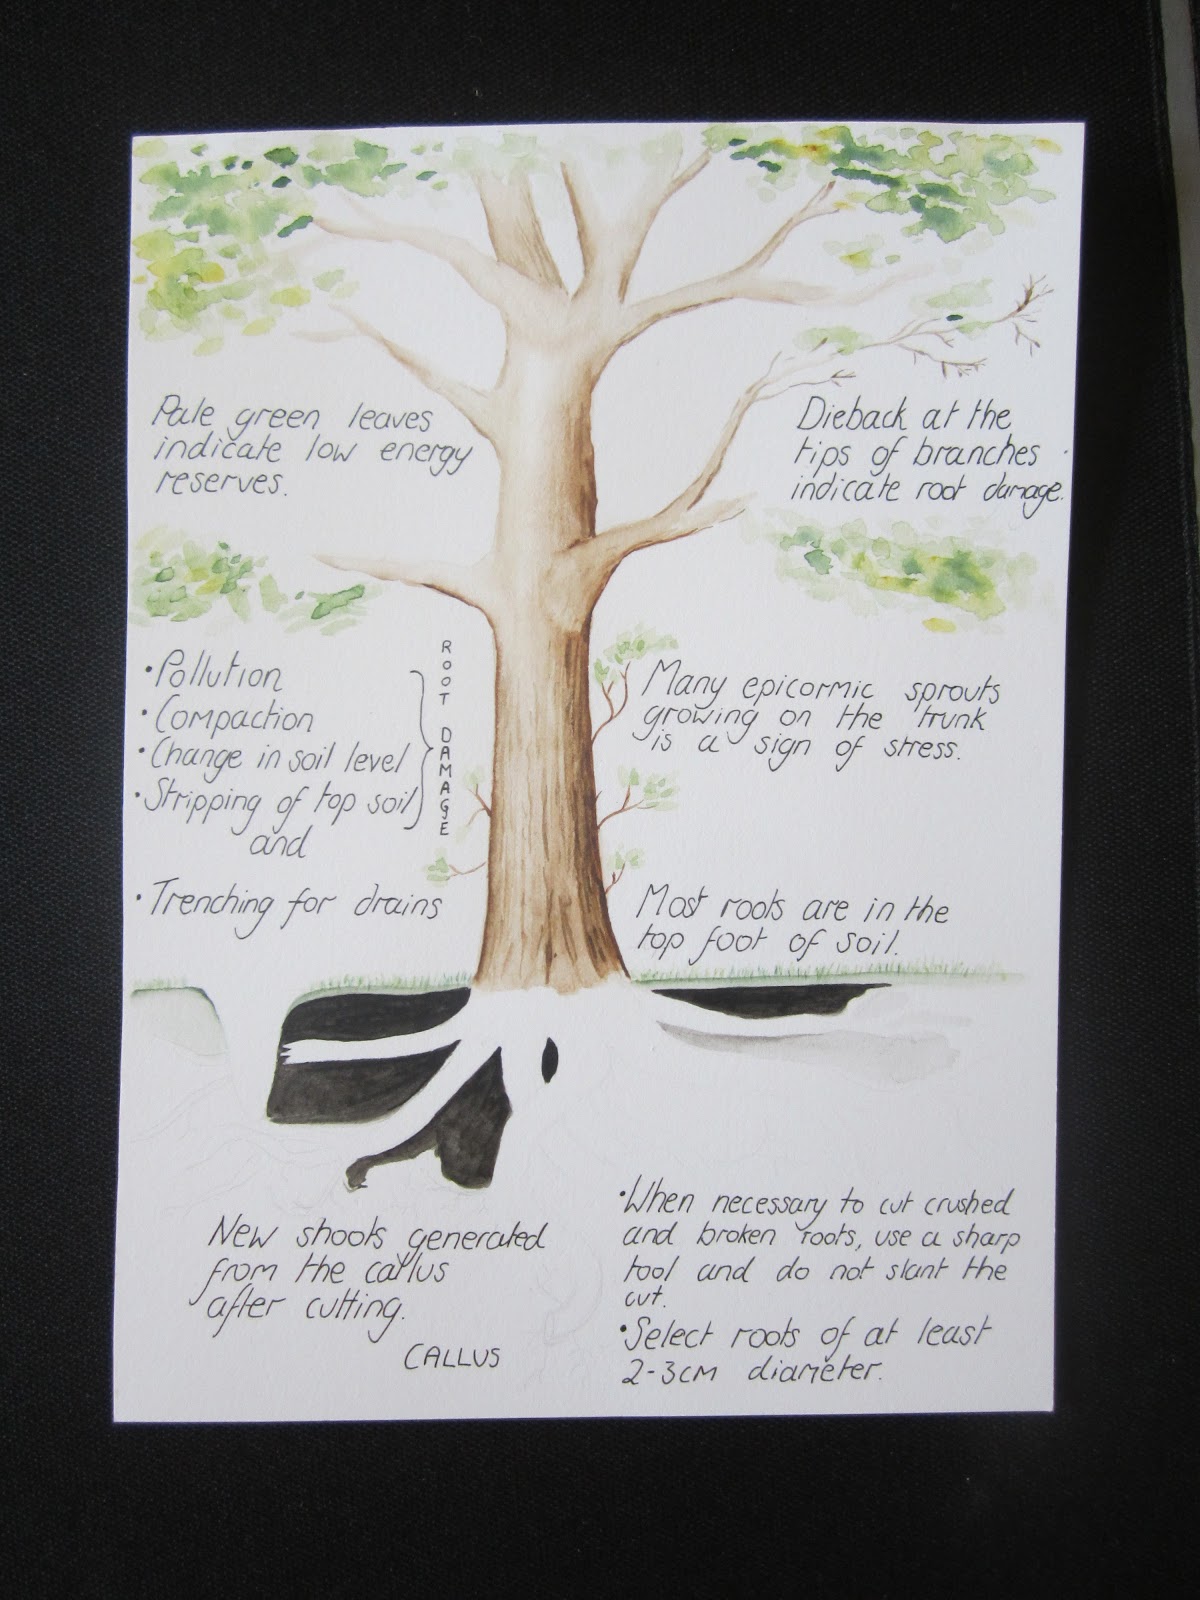 Pale green leaves
indicate low energy
reserves.
Dieback at the
tips of branches
indicate root damage.
• Pollution
• Compaction
• Change in soil level
• Stripping of top soil
and
• Trenching for drains
ROOT DAMAGE
Many epicormic sprouts
growing on the trunk
is a sign of stress.
Most roots are in the
top foot of soil.
New shoots generated
from the callus
after cutting.
CALLUS
• When necessary to cut crushed
and broken roots, use a sharp
tool and do not slant the
cut.
• Select roots of at least
2-3cm diameter.